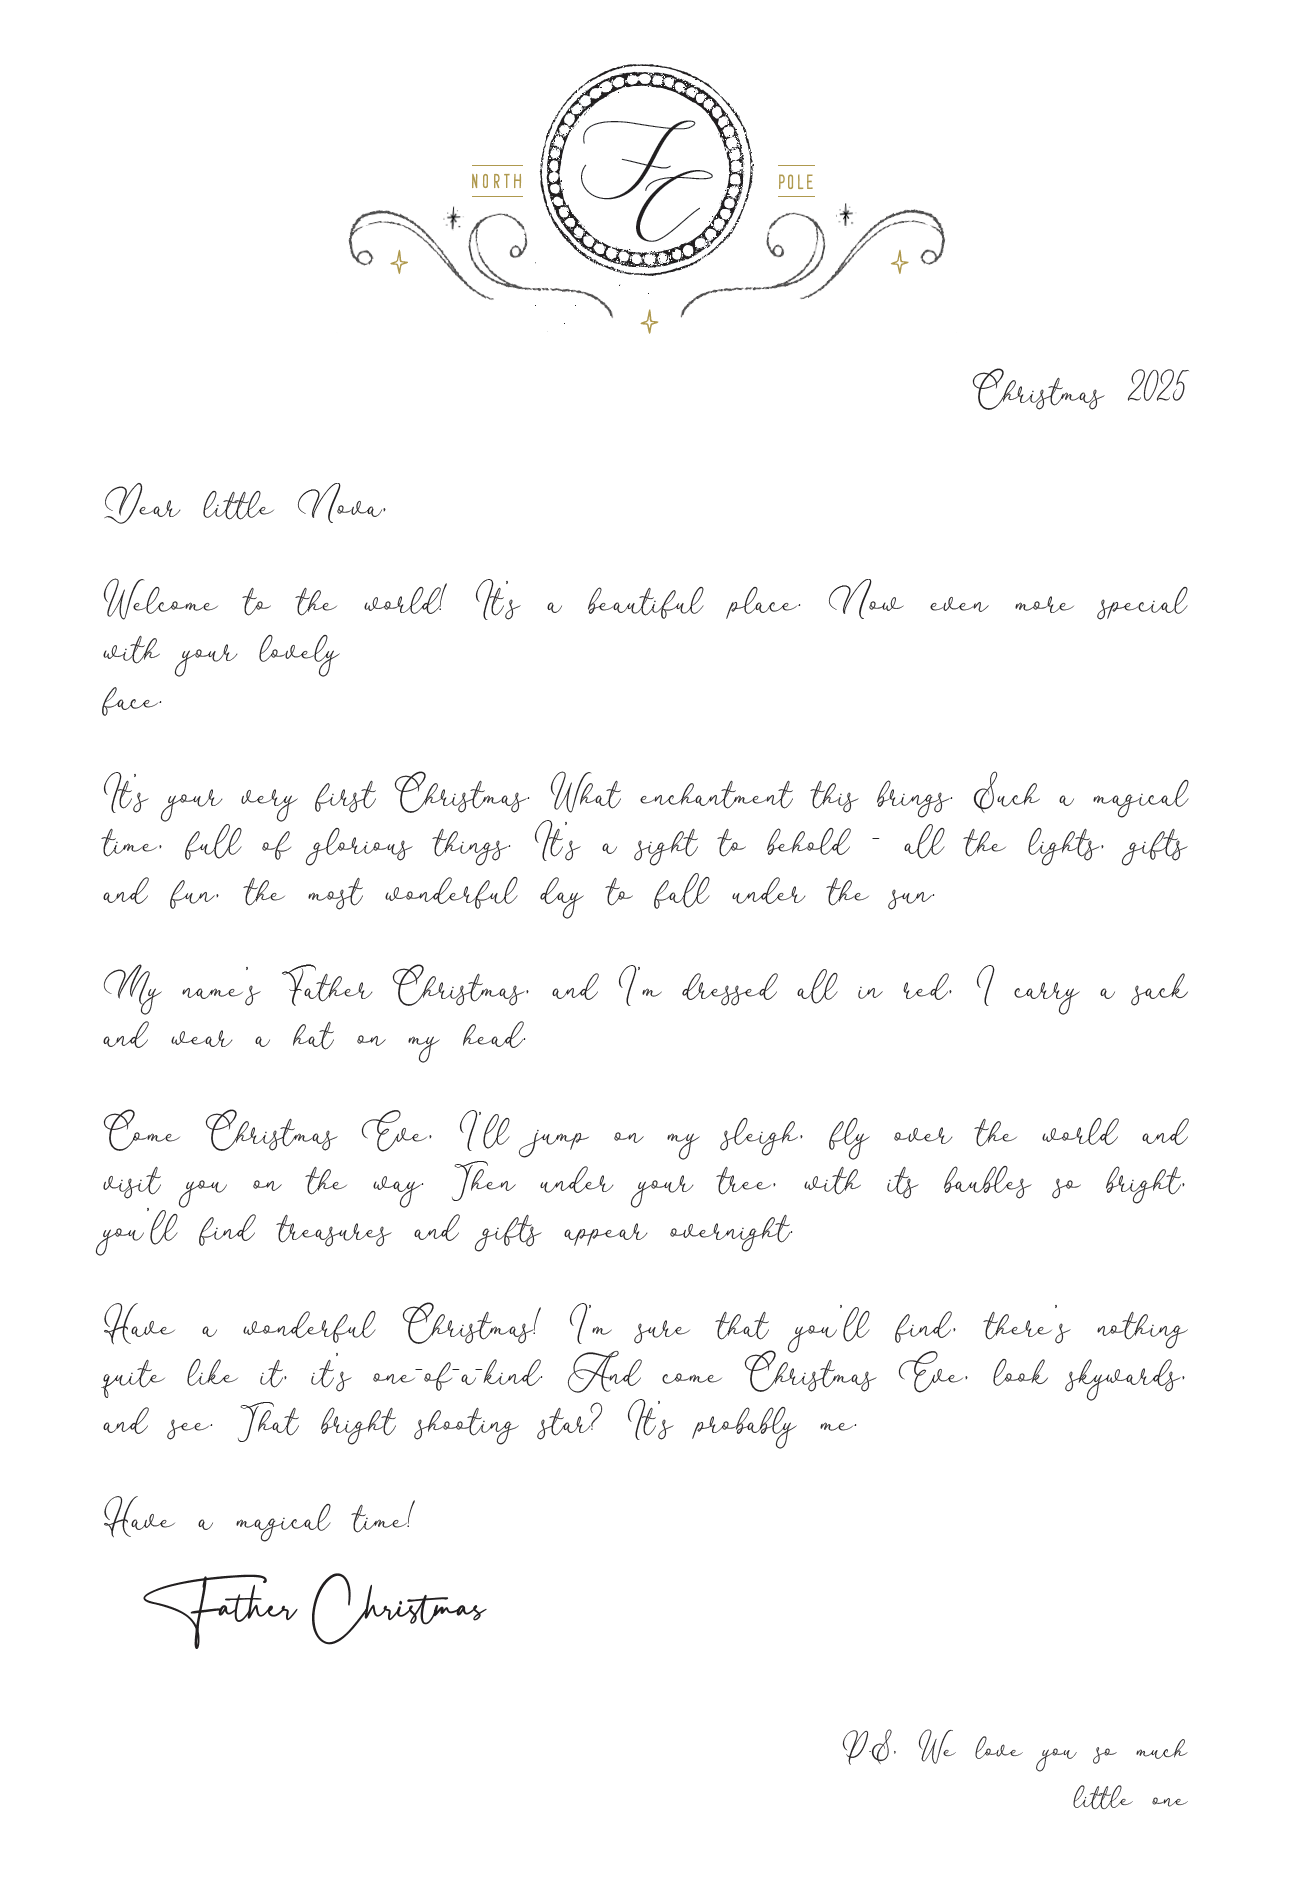 FC
NORTH
POLE
Christmas 2025
Dear little Nova,
Welcome to the world! It's a beautiful place. Now even more special
with your lovely
face.
It's your very first Christmas. What enchantment this brings. Such a magical
time, full of glorious things. It's a sight to behold - all the lights, gifts
and fun, the most wonderful day to fall under the sun.
My name's Father Christmas, and I'm dressed all in red, I carry a sack
and wear a hat on my head.
Come Christmas Eve, I'll jump on my sleigh, fly over the world and
visit you on the way. Then under your tree, with its baubles so bright,
you'll find treasures and gifts appear overnight.
Have a wonderful Christmas! I'm sure that you'll find, there's nothing
quite like it, it's one-of-a-kind. And come Christmas Eve, look skywards,
and see. That bright shooting star? It's probably me.
Have a magical time!
Father Christmas
P.S. We love you so much
little one